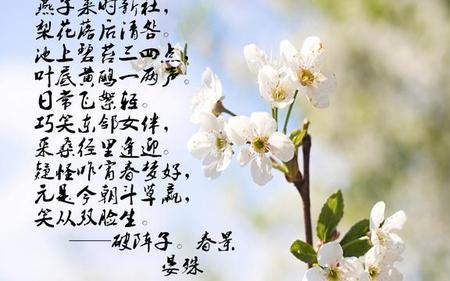 燕子来时新社，
梨花落后清明。
池上碧苔三四点
叶底黄鹂一两声。
日常飞絮轻。
巧笑东邻女伴，
采桑径里逢迎。
疑怪昨宵春梦好，
元是今朝斗草赢，
笑从双脸生。
——破阵子。春景
晏殊